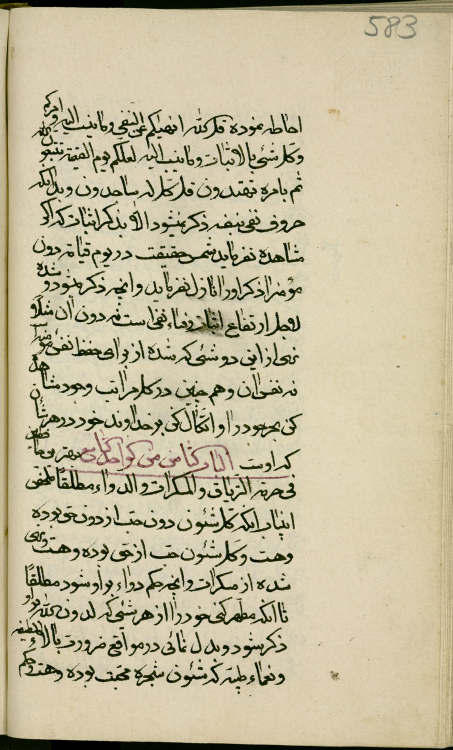 583
احاطه نموده قل كل الله انهيكم عن النفي وما ينسب اليه وامركم
وكل شئ بالاثبات وما ينسب اليه لعلكم يوم القيمة
ثم بامره تهتدون قل كل له ساجدون و بدانكه
حروف نفى بنفسه ذكر نميشود الا بذكر اثبات كه اكر
مشاهده نفرمايد شمس حقيقت در يوم قيامة دون
مؤمنه اذكر اورا نازل نفرمايد و انچه ذكر ميشود
لاجل ارتفاع اثبات وفناء نفى است نه دون ان مثلا
نهى از اين دو شئى كه شده از براى حفظ نفس
نه نفى ان و همچنين در كل مراتب وجود مشاهده
كن بعد خود را و اتكال كن برخداوند خود در هر شأن
كه اوست
فى حرمة الترياق والمسكرات والدواء مطلقا ملخص
اين باب انكه كل شئون دون حب از دون حق بوده
وهست و كل شئون حب از حق بوده وهست
شده از مسكرات و انچه حكم دواء بر او شود مطلقا
تا انكه مطهر كنى خود را از هر شئى كه لدون الله
ذكر شود و بدل نمائى در مواقع ضرورت بالاء لطيفه
و نعماء طيبه كه شئون شجره محبت بوده وهست